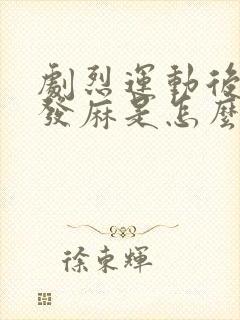 劇烈運動後
發麻是怎麼
徐東輝